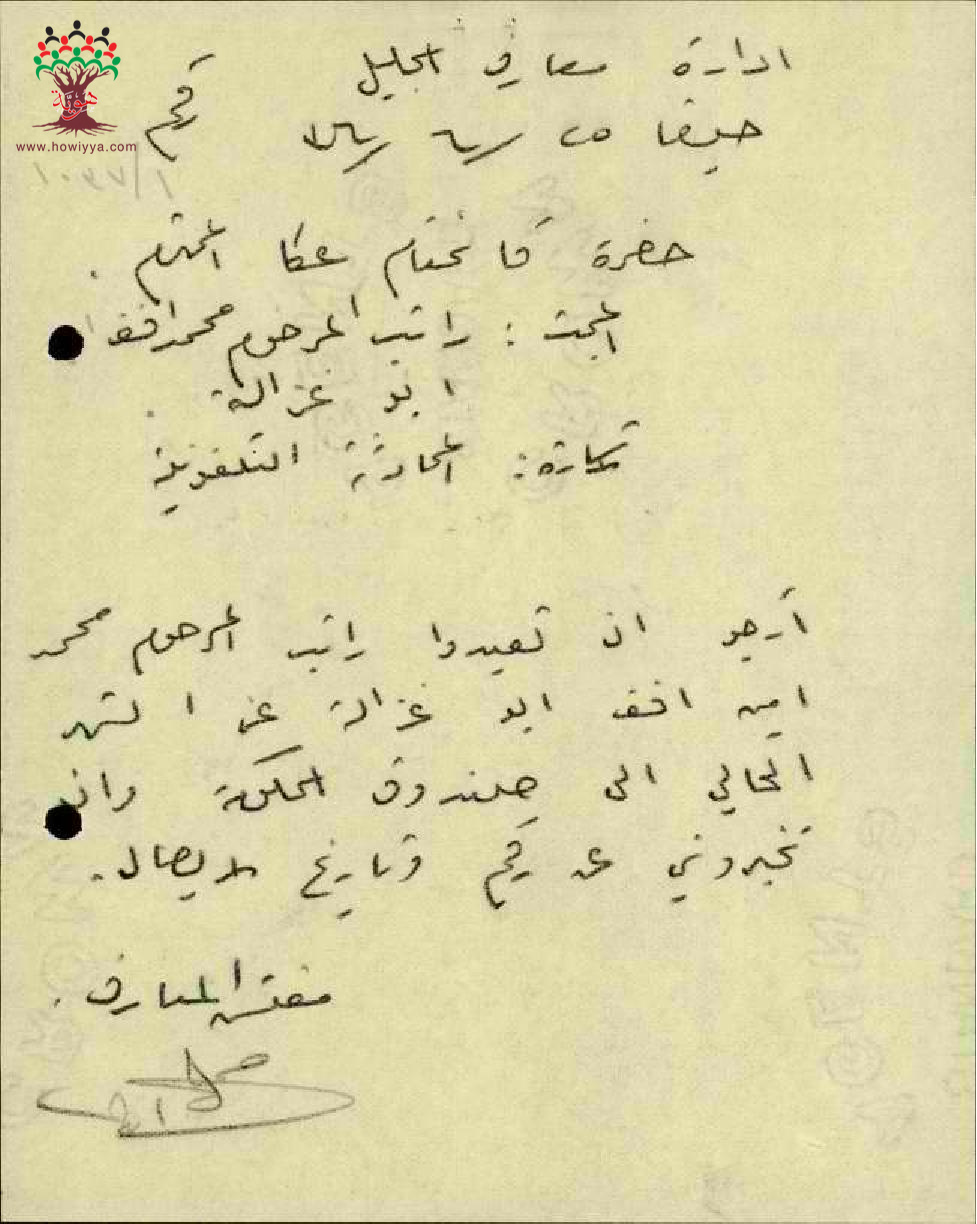 هوية
www.howiyya.com
ادارة معارف الجليل
حيفا رقم
١٠٩٧/١
حضرة قائمقام عكا المحترم .
المبحث : راتب المرحوم محمد افندي
ابو غزالة .
تذكارة : المحادثة التلفونية
أرجو ان تعيدوا راتب المرحوم محمد
امين افندي ابو غزالة عن الشهر
الحالي الى صندوق الحكومة وان
تخبروني عن رقم وتاريخ الايصال .
مفتش المعارف .